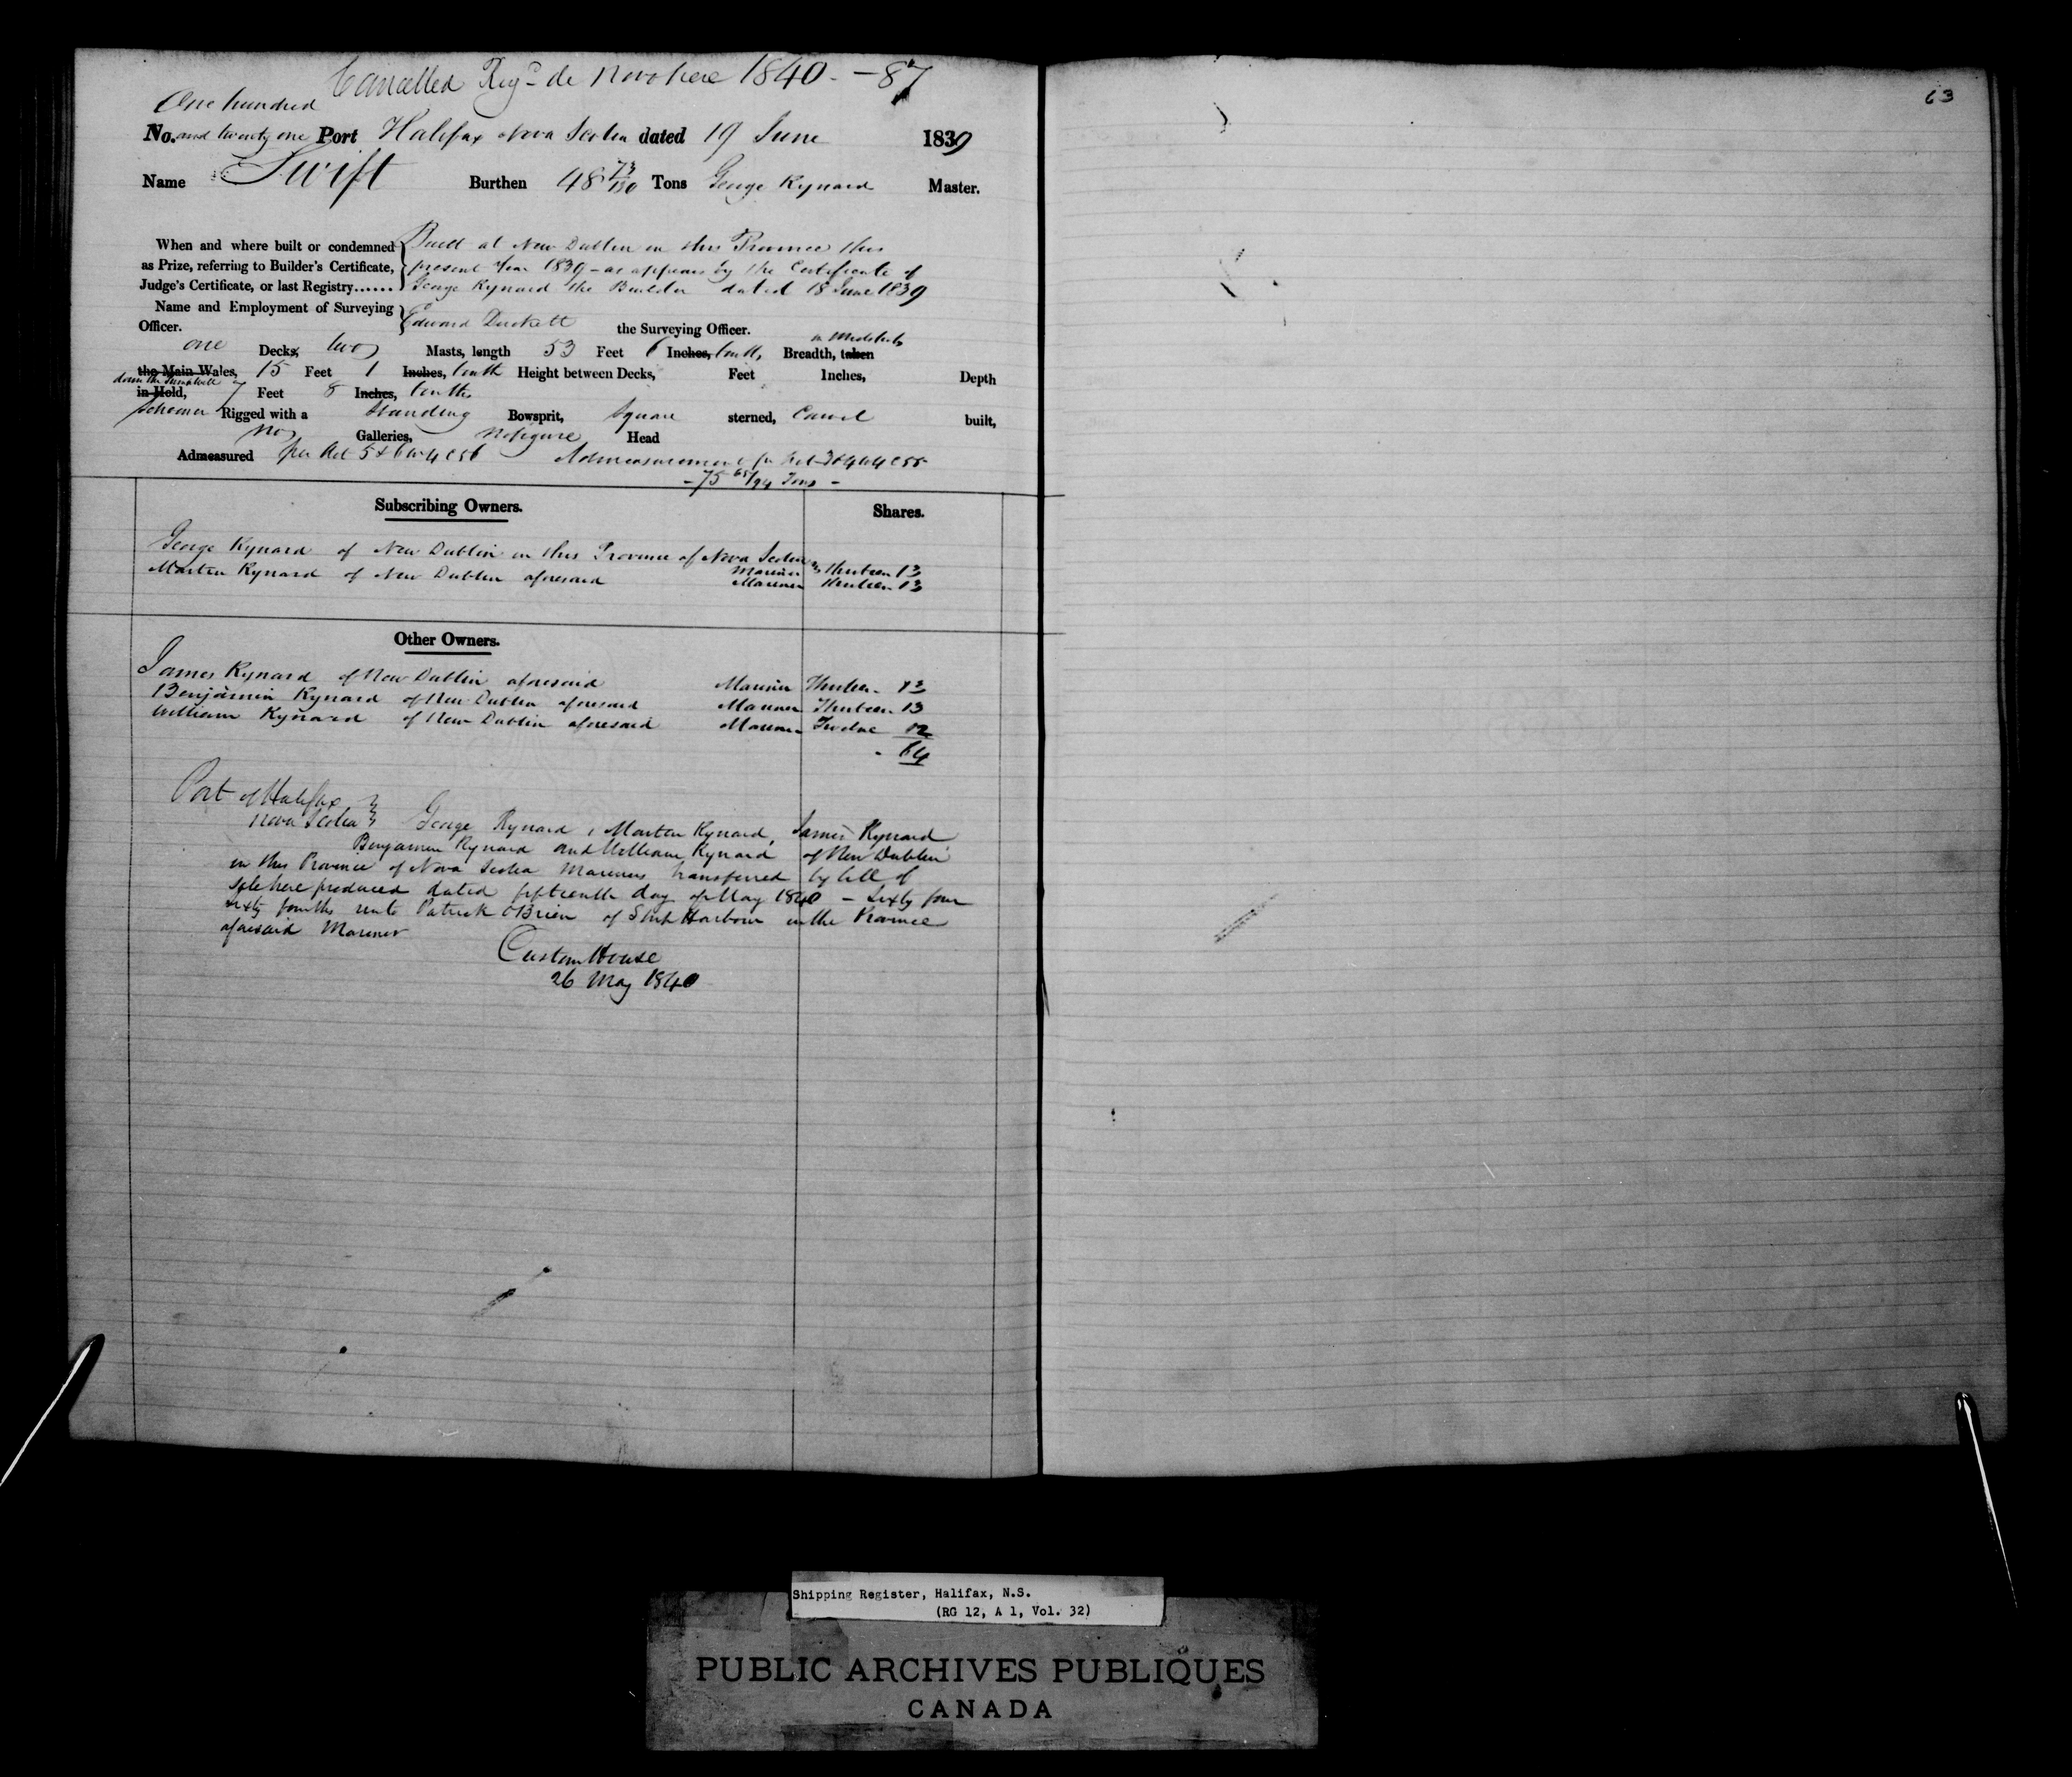 Cancelled Reg.d de Novo here 1840 - 87
63
One hundred
No. and twenty one Port Halifax Nova Scotia dated 19 June 1839
Name Swift Burthen 48 73/130 Tons George Kynard Master.
When and where built or condemned Built at New Dublin in this Province this
as Prize, referring to Builder's Certificate, present Year 1839 - as appears by the Certificate of
Judge's Certificate, or last Registry...... George Kynard the Builder dated 18 June 1839
Name and Employment of Surveying
Officer. Edward Duckett the Surveying Officer.
one Decks, two Masts, length 53 Feet 6 Inches, tenth, Breadth, taken in Midships
the Main Wales, 15 Feet 1 Inches, tenth Height between Decks, Feet Inches, Depth
in Hold, 7 Feet 8 Inches, tenths
Schooner Rigged with a Standing Bowsprit, Square sterned, Carvel built,
No Galleries, No figure Head
Admeasured per Act 5 & 6 W 4 C 56 Admeasurement per Act 3 & 4 W 4 C 55
- 75 65/94 Tons -
Subscribing Owners. Shares.
George Kynard of New Dublin in this Province of Nova Scotia
Mariner Thirteen 13
Martin Kynard of New Dublin aforesaid Mariner Thirteen 13
Other Owners.
James Kynard of New Dublin aforesaid Mariner Thirteen 13
Benjamin Kynard of New Dublin aforesaid Mariner Thirteen 13
William Kynard of New Dublin aforesaid Mariner Twelve 12
64
Port of Halifax
Nova Scotia George Kynard, Martin Kynard, James Kynard
Benjamin Kynard and William Kynard of New Dublin
in this Province of Nova Scotia Mariners transferred by bill of
Sale here produced dated fifteenth day of May 1840 - Sixty four
Sixty fourths unto Patrick O'Brien of Ship Harbour in the Province
aforesaid Mariner
Custom House
26 May 1840
Shipping Register, Halifax, N.S.
(RG 12, A 1, Vol. 32)
PUBLIC ARCHIVES PUBLIQUES
CANADA